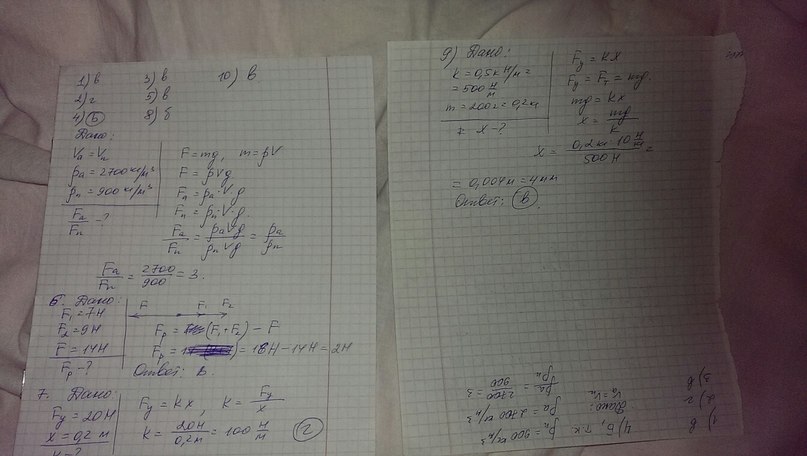 1) в 3) в 10) в.
2) г 5) в
4) б 8) б
Дано:
Vа = Vп
ρа = 2700 кг/м³
ρп = 900 кг/м³
Fа/Fп - ?
F = mg, m = ρV
F = ρVg
Fа = ρа·Vg
Fп = ρп·V·g.
Fа/Fп = ρаVg/ρпVg = ρа/ρп
Fа/Fп = 2700/900 = 3.
6. Дано:
F₁ = 7Н
F₂ = 9Н
F = 14Н
Fр - ?
F F₁ F₂
Fр = (F₁ + F₂) - F
Fр = = 16Н - 14Н = 2Н
Ответ: в.
7. Дано:
Fу = 20Н
x = 0,2 м
к - ?
Fу = Kx, K = Fу/x
K = 20Н/0,2м = 100 Н/м г
9) Дано:
K = 0,5кН/м =
= 500 Н/м
m = 200г = 0,2кг
x - ?
Fу = Kx
Fу = Fт = mg.
mg = Kx
x = mg/K
x = 0,2 кг · 10 Н/кг / 500 Н =
= 0,004м = 4мм
Ответ: в.
1) в
2) г
3) в
4) Б, т.к.
Дано:
Vа = Vп
ρп = 900 кг/м³
ρа = 2700 кг/м³
ρа/ρп = 2700/900 = 3